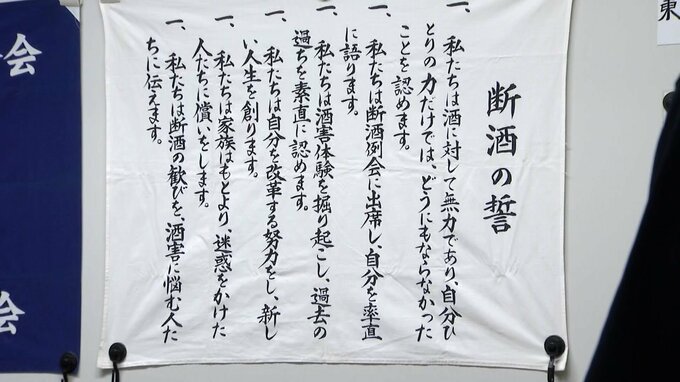 断酒の誓
一、私たちは酒に対して無力であり、自分ひ
とりの力だけでは、どうにもならなかった
ことを認めます。
一、私たちは断酒例会に出席し、自分を率直
に語ります。
一、私たちは酒害体験を掘り起こし、過去の
過ちを素直に認めます。
一、私たちは自分を改革する努力をし、新し
い人生を創ります。
一、私たちは家族はもとより、迷惑をかけた
人たちに償いをします。
一、私たちは断酒の歓びを、酒害に悩む人た
ちに伝えます。
東
会
会